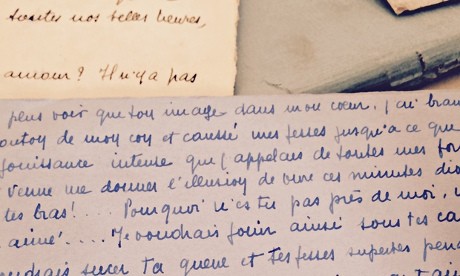 toutes nos belles heures,
amour? Il n'y a pas
peux voir que ton image dans mon cœur. J'ai
bouton de mon con et caressé mes fesses jusqu'à ce que
jouissance intense que j'appelais de toutes mes for
venue me donner l'illusion de vivre ces minutes
tes bras!.... Pourquoi n'es tu pas près de moi,
aimé!.... Je voudrais jouir ainsi sous tes ca
sucer ta queue et tes fesses superbes